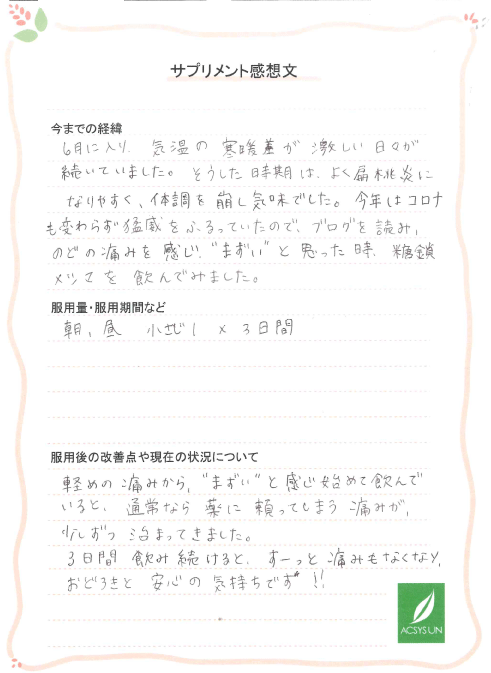 サプリメント感想文
今までの経緯
6月に入り、気温の寒暖差が激しい日々が
続いていました。そうした時期は、よく扁桃炎に
なりやすく、体調を崩し気味でした。今年はコロナ
も変わらず猛威をふるっていたので、ブログを読み、
のどの痛みを感じ、"まずい"と思った時、糖鎖
メツマを飲んでみました。
服用量・服用期間など
朝、昼 小さじ1 × 3日間
服用後の改善点や現在の状況について
軽めの痛みから、"まずい"と感じ始めて飲んで
いると、通常なら薬に頼ってしまう痛みが、
少しずつ治まってきました。
3日間飲み続けると、すーっと痛みもなくなり、
おどろきと安心の気持ちです!!
ACSYSUN